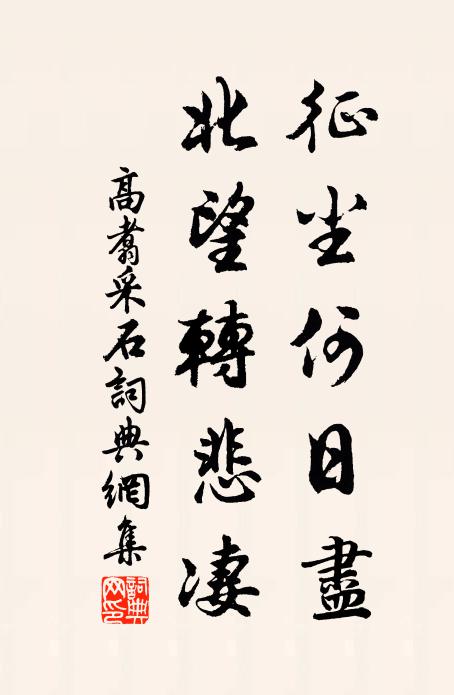 征尘何日盡
北望轉悲凄
高翥采石詞典網集
詞典网印